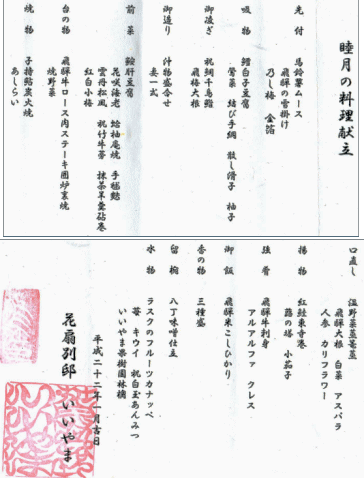 睦月の料理献立
先付 馬鈴薯ムース
飛騨の雪掛け
乃し梅 金箔
吸物 鱈白子豆腐
鶯菜 結び手綱 散し滑子 柚子
御凌ぎ 祝鯛千鳥鮨
飛騨大根
御造り 汁物盛合せ
妻一式
前菜 鮟肝豆腐
花咲海老 蛤柚庵焼 手毬麩
雲丹松風 祝竹牛蒡 抹茶羊羹砧巻
紅白小梅
台の物 飛騨牛ロース肉ステーキ囲炉裏焼
焼野菜
焼物 子持鮎炭火焼
あしらい
口直し 温野菜蒸篭蒸
飛騨大根 白菜 アスパラ
人参 カリフラワー
揚物 紅鮭東寺巻
蕗の塔 小茄子
強肴 飛騨牛刺身
アルファルファ クレス
御飯 飛騨米こしひかり
香の物 三種盛
留椀 八丁味噌仕立
水物 ラスクのフルーツカナッペ
苺 キウイ 祝白玉あんみつ
いいやま果樹園林檎
平成二十二年一月吉日
花扇別邸 いいやま